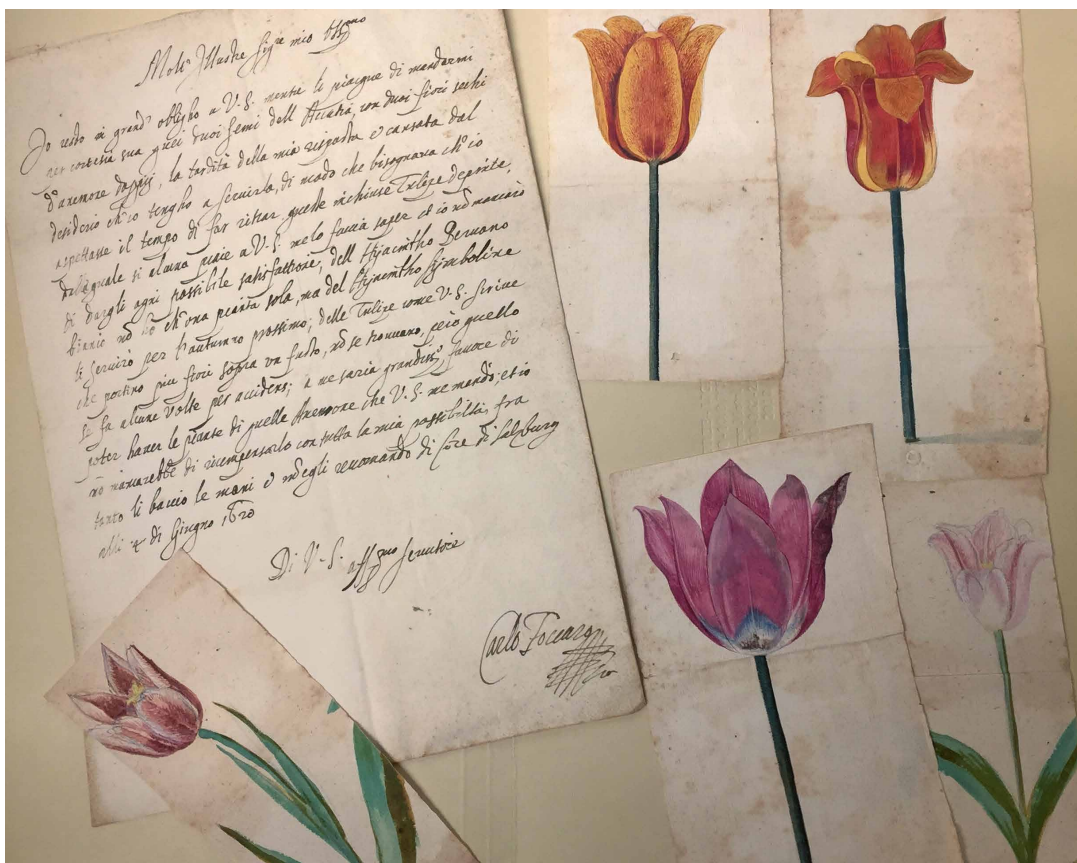 Molto Illustre Sig.re mio Oss.mo
Io resto in grand' obligho a V.S. mentre li piacque di mandarmi
per cortesia sua quei duoi semi dell' Acatia, con duoi fiori sechi
d'anemone doppii, la tardità della mia risposta è causata dal
desiderio ch'io tengho a servirla, di modo che bisognava ch'io
aspettasse il tempo di far ritrar queste inchiuse Tulipe depinte,
dalle quale si alcuna piace a V.S. me lo faccia saper et io nõ mancarò
di dargli ogni possibile satisfattione, dell Hijacintho Peruano
bianco nõ hò ch'una pianta sola, ma del Hijacintho
li servirò per l'autunno prossimo; delle Tulipe come V.S. scrive
che portino piu fiori sopra un fusto, nõ se trouano, però quello
si fa alcune volte per accidens; a me saria grandiss.o favore di
poter haver le piante di quelle Anemone che V.S. me mandò, et io
nõ mancarebbe di ricompensarlo con tutta la mia possibiltà, fra
tanto li baccio le mani e me gli recomando di core di Salzburg
alli di Giugno 1620
Di V.S. aff.mo servitore
Carlo Foccaro